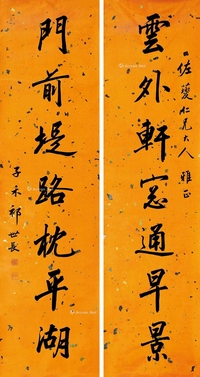 佐廔仁兄大人雅正
雲外軒窓通早景
門前堤路枕平湖
子禾祁世長